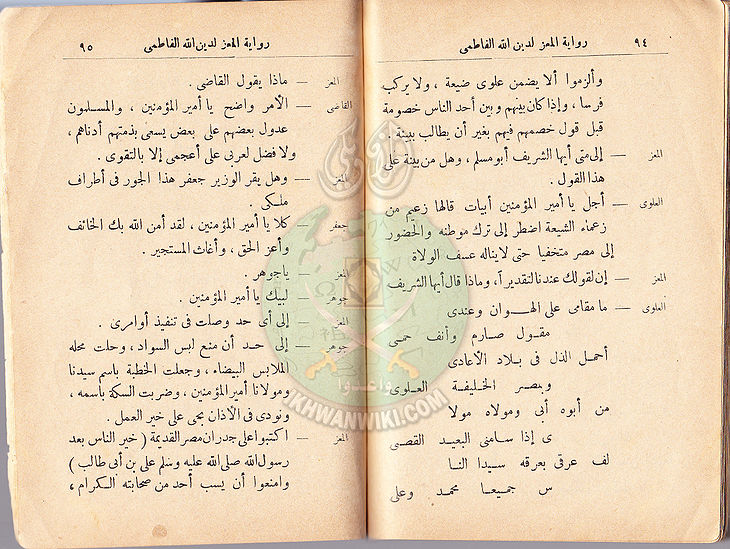 ٩٤
رواية المعز لدين الله الفاطمى
وألزموا ألا يضمن علوى ضيعة ، ولا يركب
فرسا ، وإذا كان بينهم وبين أحد الناس خصومة
قبل قول خصمهم فيهم بغير أن يطالب ببينة .
المعز — إلى متى أيها الشريف أبو مسلم ، وهل من بينة على
هذا القول .
العلوى — أجل يا أمير المؤمنين أبيات قالها زعيم من
زعماء الشيعة اضطر إلى ترك موطنه والحضور
إلى مصر متخفيا حتى لا يناله عسف الولاة
المعز — إن لقولك عندنا لتقديراً ، وماذا قال أيها الشريف
العلوى — ما مقامى على الهــوان وعندى
مقول صارم وأنف حمى
أحمل الذل فى بلاد الأعادى
وبمصر الخليفة العلوى
من أبوه أبى ومولاه مولا
ى إذا سامنى البعيد القصى
لف عرقى بعرقه سيدا النا
س جميعا محمد وعلى
رواية المعز لدين الله الفاطمى
٩٥
المعز — ماذا يقول القاضى .
القاضى — الأمر واضح يا أمير المؤمنين ، والمسلمون
عدول بعضهم على بعض يسعى بذمتهم أدناهم ،
ولا فضل لعربى على أعجمى إلا بالتقوى .
المعز — وهل يقر الوزير جعفر هذا الجور فى أطراف
ملكى .
جعفر — كلا يا أمير المؤمنين ، لقد أمن الله بك الخائف
وأعز الحق ، وأغاث المستجير .
المعز — يا جوهر .
جوهر — لبيك يا أمير المؤمنين .
المعز — إلى أى حد وصلت فى تنفيذ أوامرى .
جوهر — إلى حد أن منع لبس السواد ، وحلت محله
الملابس البيضاء ، وجعلت الخطبة باسم سيدنا
ومولانا أمير المؤمنين ، وضربت السكة باسمه ،
ونودى فى الأذان بحى على خير العمل .
المعز — اكتبوا على جدران مصر القديمة ( خير الناس بعد
رسول الله صلى الله عليه وسلم على بن أبى طالب )
وامنعوا أن يسب أحد من صحابته الكرام ،
وأعدوا
IKHWANWIKI.COM